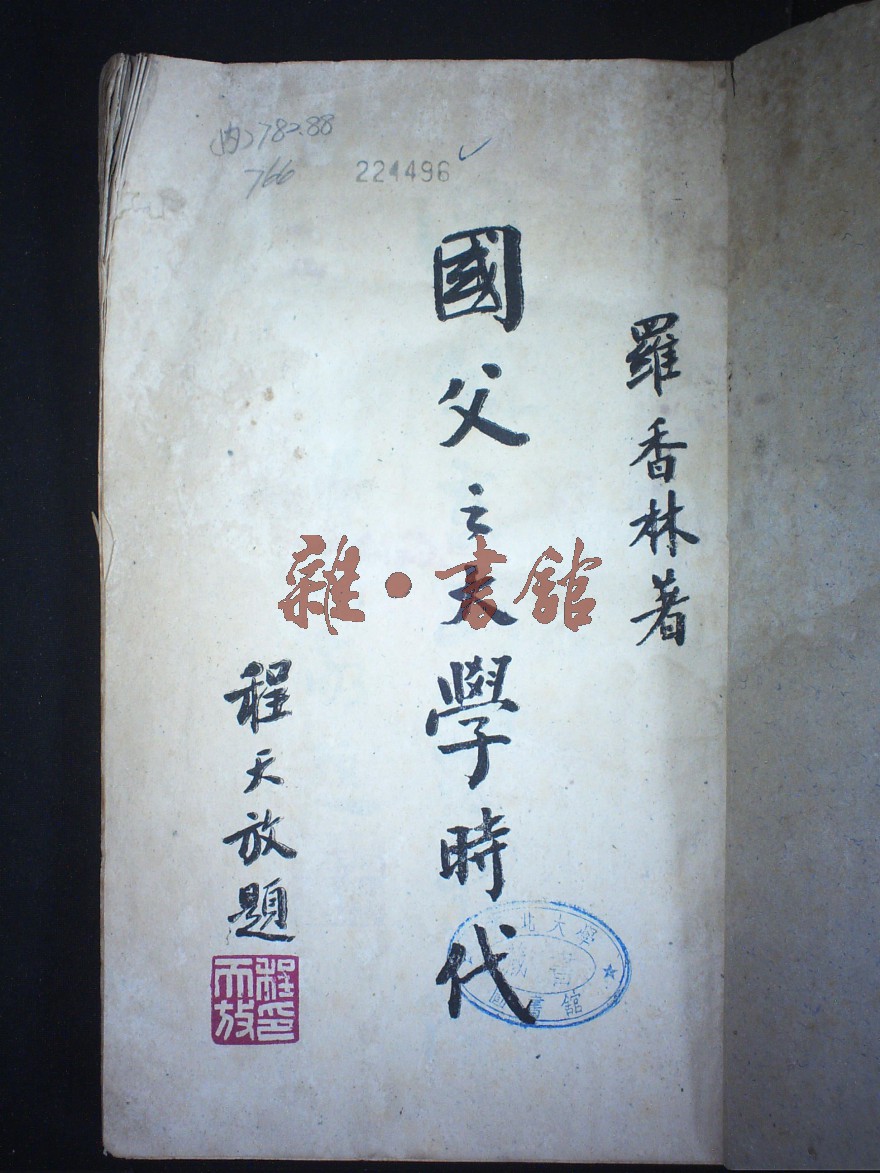 (内)782.88
766
224496
羅香林著
國父之大學時代
程天放題
程天放印
雜·書館
北大學
藏書
圖書館